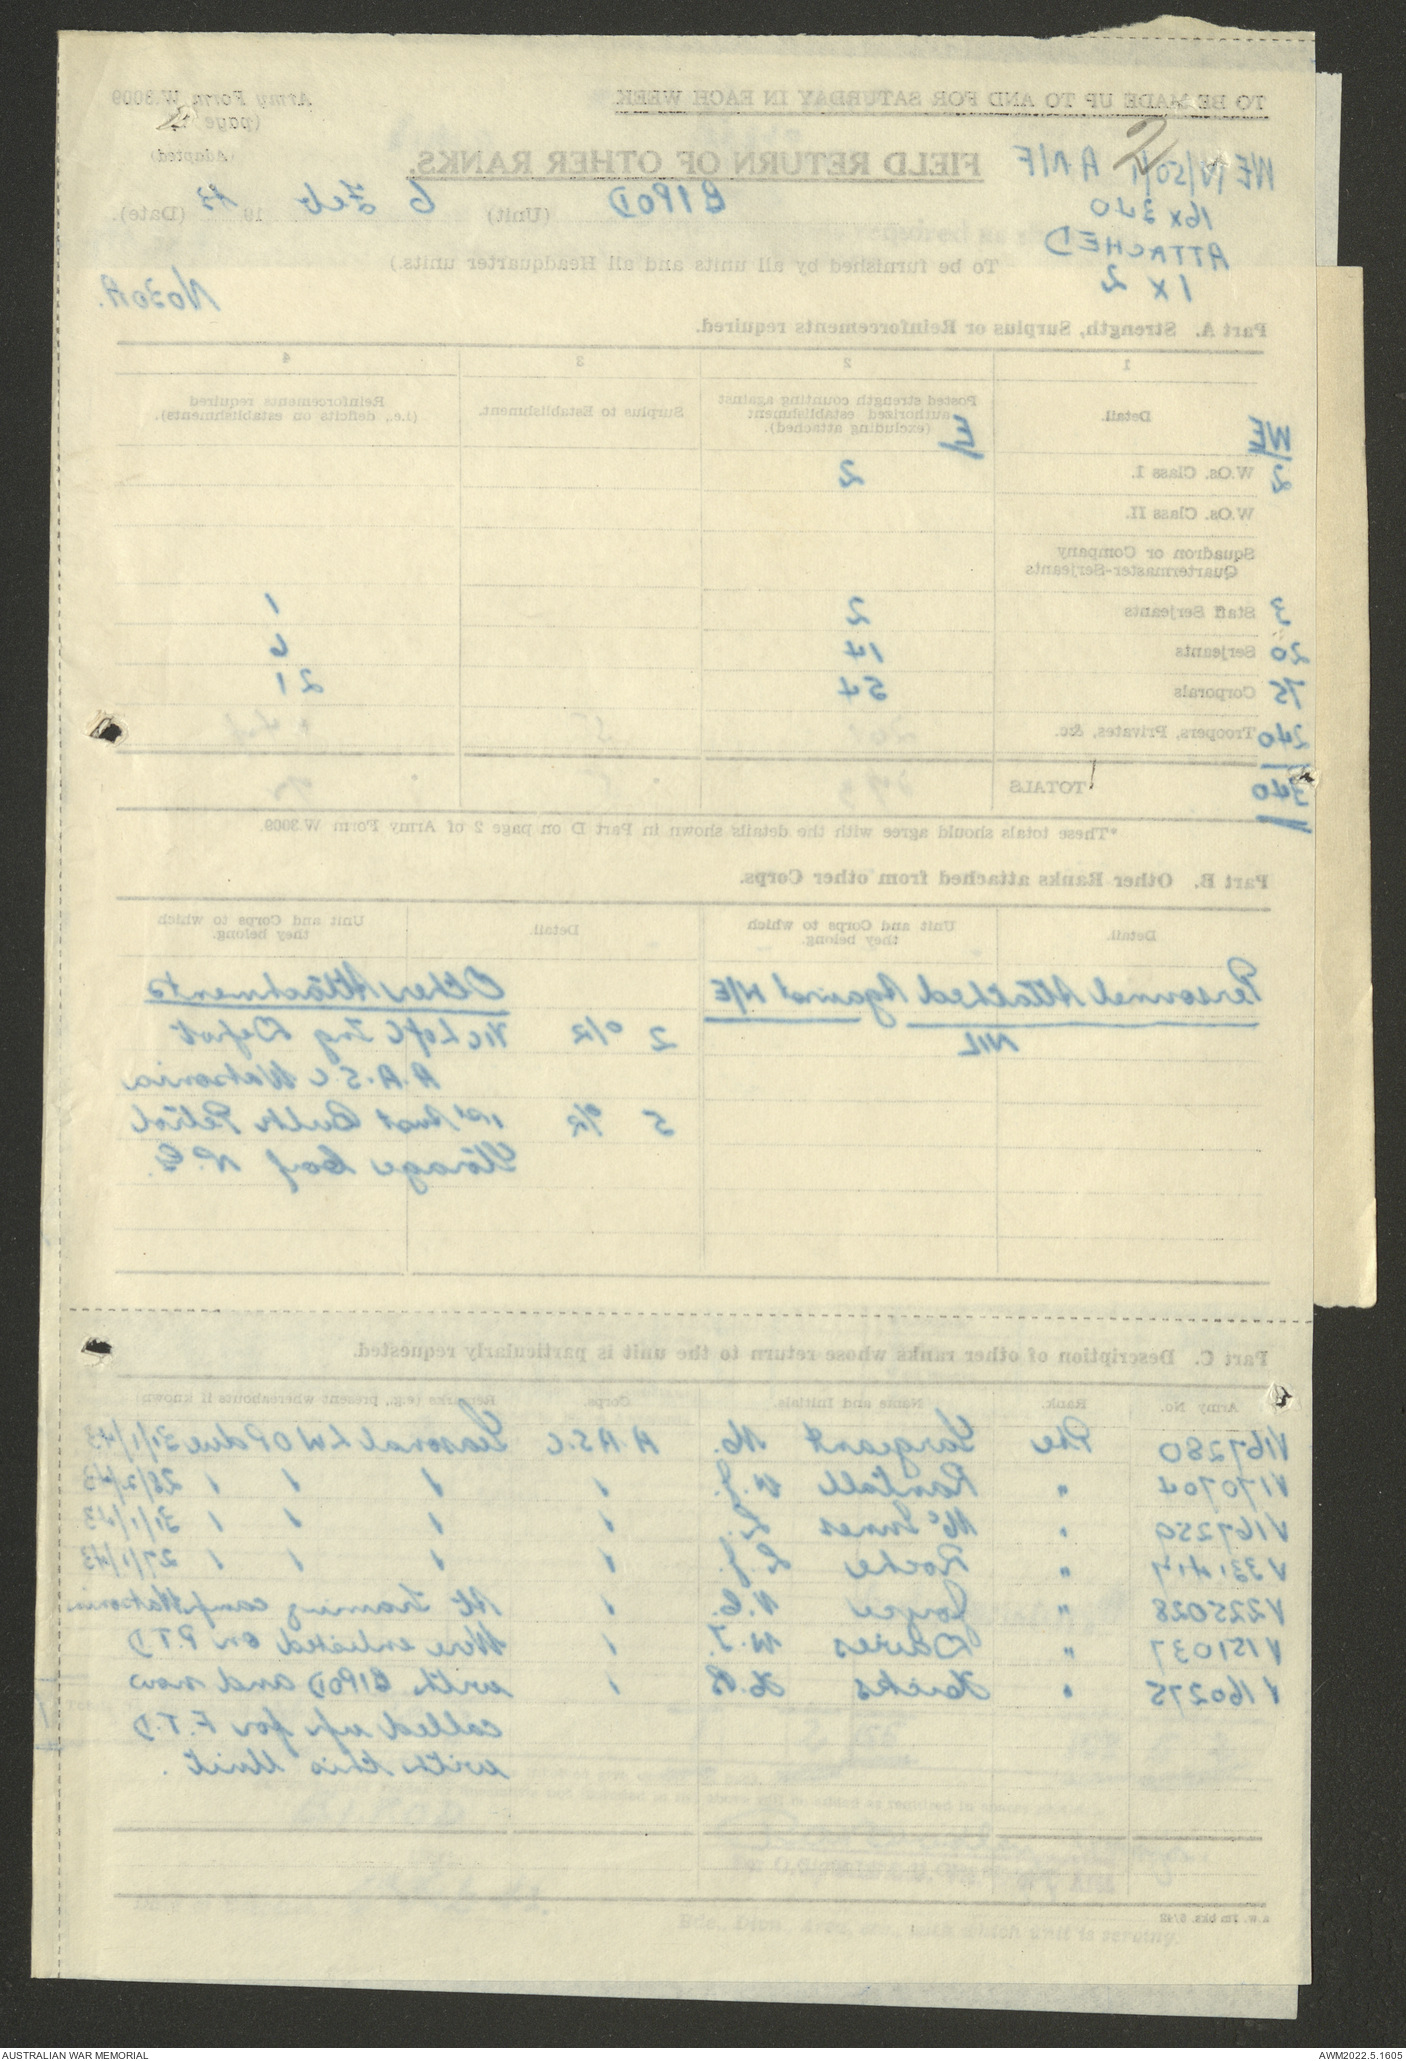 TO BE MADE UP TO AND FOR SATURDAY IN EACH WEEK
Army Form W.3009
(page 1)
(Adapted)
2
WE IV/50/1 A N/F
16 x 340
ATTACHED
1 x 2
FIELD RETURN OF OTHER RANKS.
BIPOD (Unit) 6 Feb 1943 (Date).
To be furnished by all units and all Headquarter units.)
No 30A.
Part A. Strength, Surplus or Reinforcements required.
1 2 3 4
Detail. Posted strength counting against authorized establishment (excluding attached). Surplus to Establishment. Reinforcements required (i.e., deficits on establishments).
WE E
2 W.Os. Class I. 2
W.Os. Class II.
Squadron or Company
Quartermaster-Serjeants
3 Staff Serjeants 2 1
20 Serjeants 14 6
75 Corporals 54 21
240 Troopers, Privates, &c.
340 TOTALS
*These totals should agree with the details shown in Part D on page 2 of Army Form W.3009.
Part B. Other Ranks attached from other Corps.
Detail. Unit and Corps to which they belong. Detail. Unit and Corps to which they belong.
Personnel Attached Against W/E Other Attachments
NIL 2 O/R Vic LofC Trg Depot
A.A.S.C Watsonia
5 O/R 1st Aust Bulk Petrol
Storage Coy N.G.
Part C. Description of other ranks whose return to the unit is particularly requested.
Army No. Rank. Name and Initials. Corps Remarks (e.g., present whereabouts if known)
V167280 Pte Sargeant M. A.A.S.C Seasonal LWOP due 31/1/43
V170704 " Rantall W.J. " " " " 28/2/43
V167259 " McInnes L. " " " " 31/1/43
V331417 " Roche L.J. " " " " 27/1/43
V225028 " Joyce V.C. " At training camp Watsonia
V151037 " Davies W.T. " Were enlisted on P.T.D
V160275 " Hawks H.R " with BIPOD and now
called up for F.T.D
with this Unit.
BIPOD
Bde., Divn., Area, &c., with which unit is serving.
AUSTRALIAN WAR MEMORIAL
AWM2022.5.1605